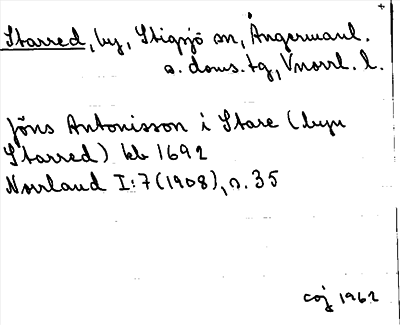 Starred, by, Stigsjö sn, Ångermanl.
s. doms. tg, Vnorrl. l.
Jöns Antonisson i Stare (byn
Starred) kb 1692
Norrland I:7 (1908), s. 35
coj 1962